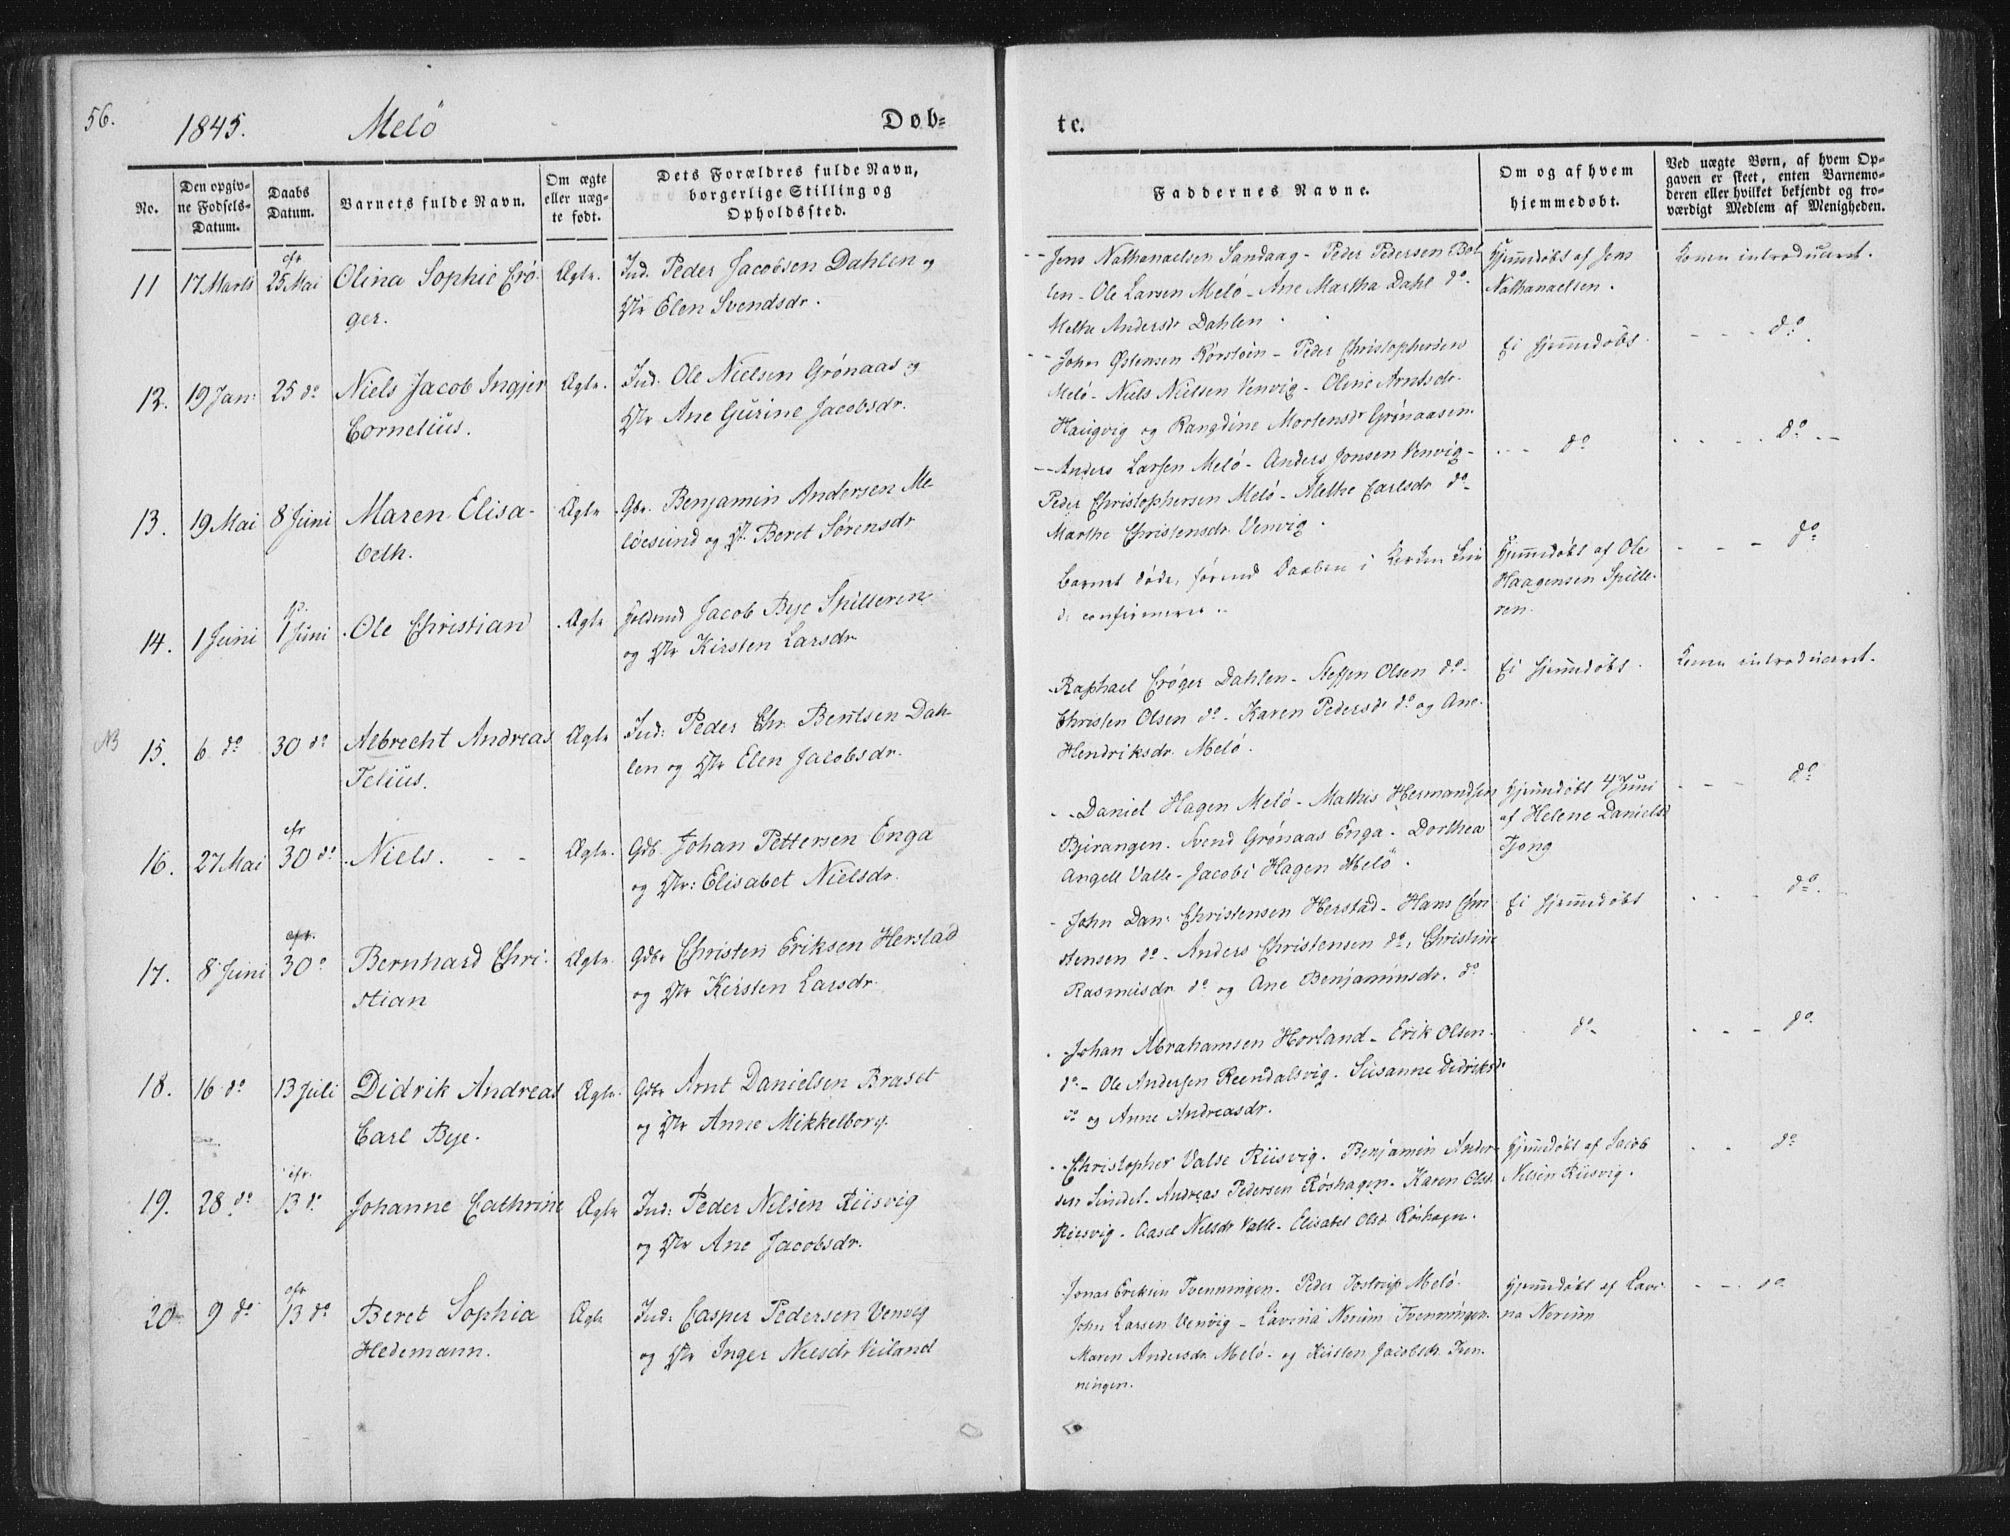 56.
1845. Melö Døb=
te.
No.
Den opgiv=
ne Fødsels=
Datum.
Daabs
Datum.
Barnets fulde Navn.
Om ægte
eller uæg=
te født.
Dets Forældres fulde Navn,
borgerlige Stilling og
Opholdssted.
Faddernes Navne.
Om og af hvem
hjemmedøbt.
Ved uægte Børn, af hvem Op=
gaven er skeet, enten Barnemo=
deren eller hvilket bekjendt og tro=
værdigt Medlem af Menigheden.
cfr
11 17 Marts 25 Mai Olina Sophie Crö- Ægte. Ind. Peder Jacobsen Dahlen og
ger. Elen Svendsdr.
Jens Nathanaelsen Sandaag - Peder Pedersen Bol
len - Ole Larsen Melö - Ane Martha Dahl do.
Methe Andersdr Dahlen.
Hjemmdöbt af Jens
Nathanaelsen.
Konen introduceret.
12. 19 Jan: 25 do Niels Jacob Ingjer Ægte. Ind. Ole Nielsen Grönaas og
Cornelius. Ane Gurine Jacobsdr.
John Östensen Korstöin - Peder Christophersen
Melö - Niels Nielsen Venvig - Oline Arntsdr.
Haugvig og Rangdine Mortensdr Grönaasen.
Ei hjemmedöbt.
do
13. 19 Mai 8 Juni Maren Elisa- Ægte Gbr. Benjamin Andersen Me-
beth. löesund og Beret Sörensdr
Anders Larsen Melö - Anders Jonsen Venvig -
Peder Christophersen Melö - Alethe Carlsdr do -
Marthe Christensdr. Venvig.
do
do
14. 1 Juni 1 Juni Ole Christian Ægte Jacob Bye Spilderen
og Kirsten Larsdr
Barnet döde, förend Daaben i Kirken
confirmeres.
Hjemmedöbt af Ole
Haagensen Spille-
ren.
do
NB 15. 6 do 30 do Albrecht Andreas Ægte Ind: Peder Chr. Bentsen Dah-
Telius. len og Elen Jacobsdr.
Raphael Cröger Dahlen - Steffen Olsen do -
Christen Olsen do - Karen Pedersdr do og Ane
Hendriksdr. Melö.
Ei hjemmedöbt.
Konen introduceret.
cfr
16. 27 Mai 30 do Niels. Ægte. Gdb. Johan Pettersen Enga
og Elisabet Nielsdr.
Daniel Hagen Melö - Mathis Hermandsen
Bjerangen - Svend Grönaas Enga - Dorthea
Angell Valle - Jacobi Hagen Melö.
Hjemmdöbt 4 Juni
af Helene Danielsd
Tjong
do
cfr.
17. 8 Juni 30 do Bernhard Chri- Ægte. Gdbr Christen Eriksen Herstad
stian og Kirsten Larsdr.
John Dan: Christensen Herstad - Hans Chri
stensen do - Anders Christensen do, Christine
Rasmusdr do og Ane Benjaminsdr. do
Ei hjemmedöbt
do.
18. 16 do 13 Juli Didrik Andreas Ægte. Gdbr Arnt Danielsen Braset
Carl Bye. og Anne Mikkelborg.
Johan Abrahamsen Horland - Erik Olsen
do - Ole Andersen Reendalsvig - Susanne Didriksdr
do og Anne Andreasdr.
do
do.
cfr.
19. 28 do 13 do Johanne Cathrine Ægte Ind: Peder Nilsen Riisvig
og Ane Jacobsdr.
Christopher Valse Riisvig - Benjamin Ander-
sen - Andreas Pedersen Röshagen - Karen Olsd.
Riisvig - Aasel Nelsdr Valle - Elisabet Olsd. Röshagn.
Hjemmdöbt af Jacob
Nelsen Riisvig.
do
cfr
20 9 do 13 do Beret Sophia Ægte Ind: Casper Pedersen Venvig
Hedemann. og Inger Neisdr Veiland
Jonas Eriksen Tvenningen - Peder Tostrup Melö -
John Larsen Venvig - Lavina Norum Tvenningen
Maren Andersdr. Melö - og Kirsten Jacobsdr. Tven-
ningen.
Hjemmdöbt af Lavi-
na Norum
do